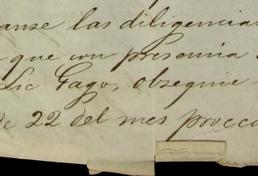 anse las diligencias
que con presencia
Lic Gago, obsequie
de 22 del mes procc